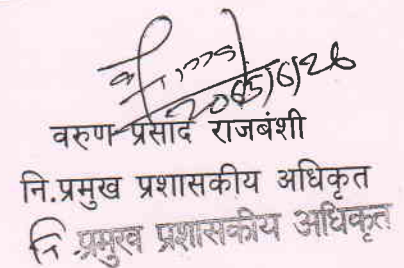 वरुण प्रसाद राजबंशी
नि.प्रमुख प्रशासकीय अधिकृत
नि प्रमुख प्रशासकीय अधिकृत